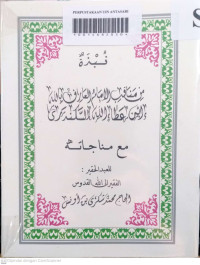 PERPUSTAKAAN UIN ANTASARI
نبذة
من مناقب الإمام العارف بالله
ابن عطاء الله السكندري
مع مناجاته
للعبد الحقير :
الفقير إلى الله القدوس
الحاج محمد شكري بن أونس